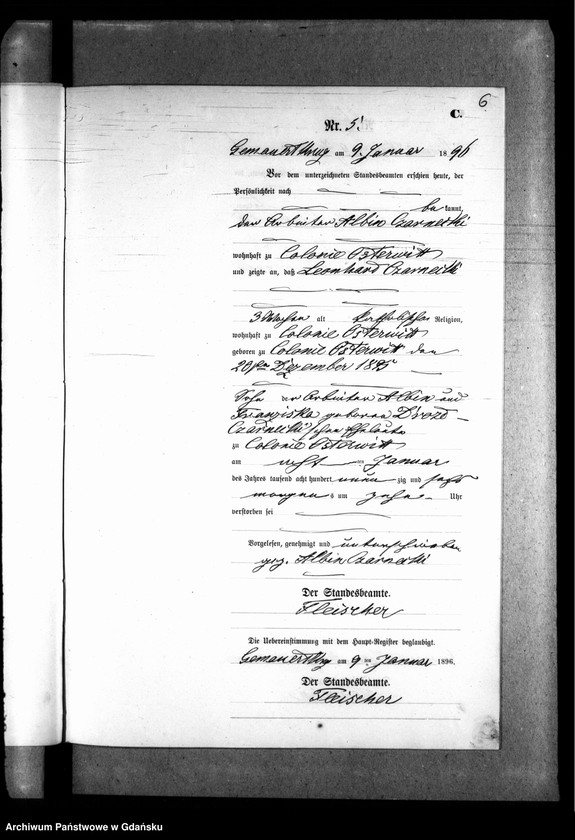 6
C.
Nr. 5.
Gemauert Krug am 9. Januar 1896
Vor dem unterzeichneten Standesbeamten erschien heute, der
Persönlichkeit nach
be kannt,
der Arbeiter Albin Czarnetki
wohnhaft zu Colonie Osterwitt
und zeigte an, daß Leonhard Czarnetki
3 Wochen alt katholischer Religion,
wohnhaft zu Colonie Osterwitt
geboren zu Colonie Osterwitt den
20ten Dezember 1895
Sohn der Arbeiter Albin und
Franziska geborene
Czarnetki'schen Eheleute
zu Colonie Osterwitt
am acht ten Januar
des Jahres tausend acht hundert neun zig und sechs
morgens um zehn Uhr
verstorben sei
Vorgelesen, genehmigt und unterschrieben
gez. Albin Czarnetki
Der Standesbeamte.
Fleischer
Die Uebereinstimmung mit dem Haupt-Register beglaubigt.
Gemauert Krug am 9 ten Januar 1896.
Der Standesbeamte.
Fleischer
Archiwum Państwowe w Gdańsku